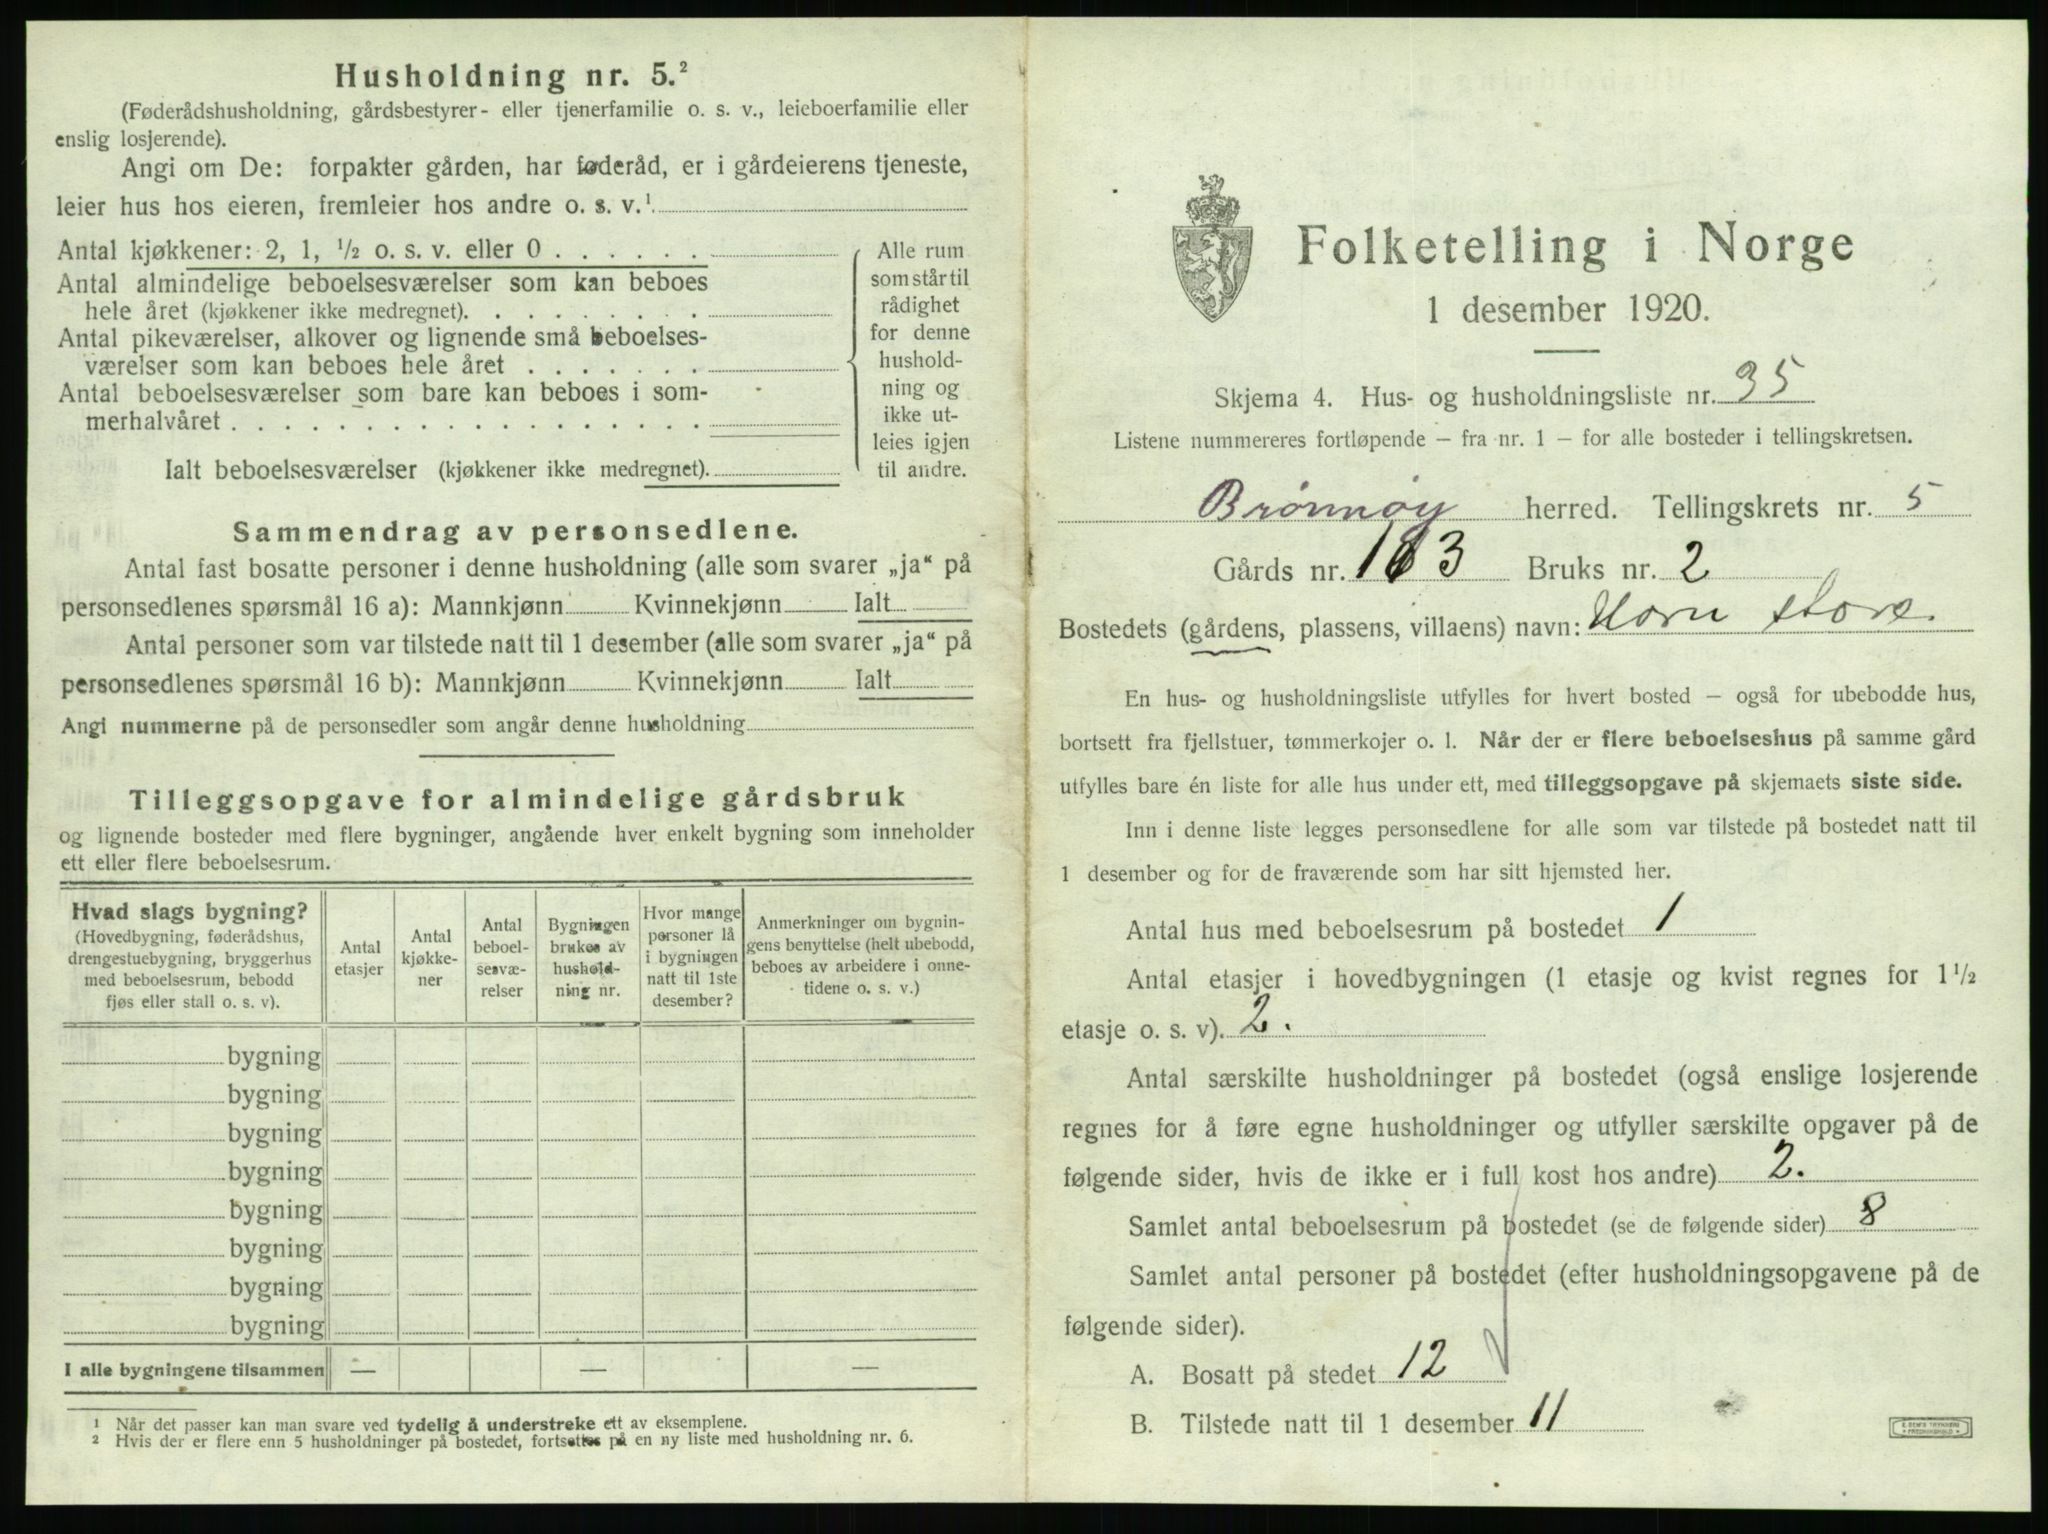 Husholdning nr. 5.²
(Føderådshusholdning, gårdsbestyrer- eller tjenerfamilie o. s. v., leieboerfamilie eller
enslig losjerende).
Angi om De: forpakter gården, har føderåd, er i gårdeierens tjeneste,
leier hus hos eieren, fremleier hos andre o. s. v.¹
Antal kjøkkener: 2, 1, ½ o. s. v. eller 0 . . . . . .
Antal almindelige beboelsesværelser som kan beboes
hele året (kjøkkener ikke medregnet). . . . . . . . .
Antal pikeværelser, alkover og lignende små beboelses-
værelser som kan beboes hele året . . . . . . .
Antal beboelsesværelser som bare kan beboes i som-
merhalvåret . . . . . . . . . . . . . . . . . .
Ialt beboelsesværelser (kjøkkener ikke medregnet).
Alle rum
som står til
rådighet
for denne
hushold-
ning og
ikke ut-
leies igjen
til andre.
Sammendrag av personsedlene.
Antal fast bosatte personer i denne husholdning (alle som svarer „ja“ på
personsedlenes spørsmål 16 a): Mannkjønn Kvinnekjønn Ialt
Antal personer som var tilstede natt til 1 desember (alle som svarer „ja“ på
personsedlenes spørsmål 16 b): Mannkjønn Kvinnekjønn Ialt
Angi nummerne på de personsedler som angår denne husholdning
Tilleggsopgave for almindelige gårdsbruk
og lignende bosteder med flere bygninger, angående hver enkelt bygning som inneholder
ett eller flere beboelsesrum.
Hvad slags bygning?
(Hovedbygning, føderådshus,
drengestuebygning, bryggerhus
med beboelsesrum, bebodd
fjøs eller stall o. s. v).
Antal
etasjer
Antal
kjøkke-
ner
Antal
beboel-
sesvæ-
relser
Bygningen
brukes av
hushold-
ning nr.
Hvor mange
personer lå
i bygningen
natt til 1ste
desember?
Anmerkninger om bygnin-
gens benyttelse (helt ubebodd,
beboes av arbeidere i onne-
tidene o. s. v.)
bygning
bygning
bygning
bygning
bygning
bygning
bygning
bygning
I alle bygningene tilsammen — — —
¹ Når det passer kan man svare ved tydelig å understreke ett av eksemplene.
² Hvis der er flere enn 5 husholdninger på bostedet, fortsettes på en ny liste med husholdning nr. 6.
Folketelling i Norge
1 desember 1920.
Skjema 4. Hus- og husholdningsliste nr. 35
Listene nummereres fortløpende – fra nr. 1 – for alle bosteder i tellingskretsen.
Brønnøy herred. Tellingskrets nr. 5
Gårds nr. 163 Bruks nr. 2
Bostedets (gårdens, plassens, villaens) navn: Horn store
En hus- og husholdningsliste utfylles for hvert bosted – også for ubebodde hus,
bortsett fra fjellstuer, tømmerkojer o. l. Når der er flere beboelseshus på samme gård
utfylles bare én liste for alle hus under ett, med tilleggsopgave på skjemaets siste side.
Inn i denne liste legges personsedlene for alle som var tilstede på bostedet natt til
1 desember og for de fraværende som har sitt hjemsted her.
Antal hus med beboelsesrum på bostedet 1
Antal etasjer i hovedbygningen (1 etasje og kvist regnes for 1½
etasje o. s. v). 2.
Antal særskilte husholdninger på bostedet (også enslige losjerende
regnes for å føre egne husholdninger og utfyller særskilte opgaver på de
følgende sider, hvis de ikke er i full kost hos andre) 2.
Samlet antal beboelsesrum på bostedet (se de følgende sider) 8
Samlet antal personer på bostedet (efter husholdningsopgavene på de
følgende sider).
A. Bosatt på stedet 12
B. Tilstede natt til 1 desember 11